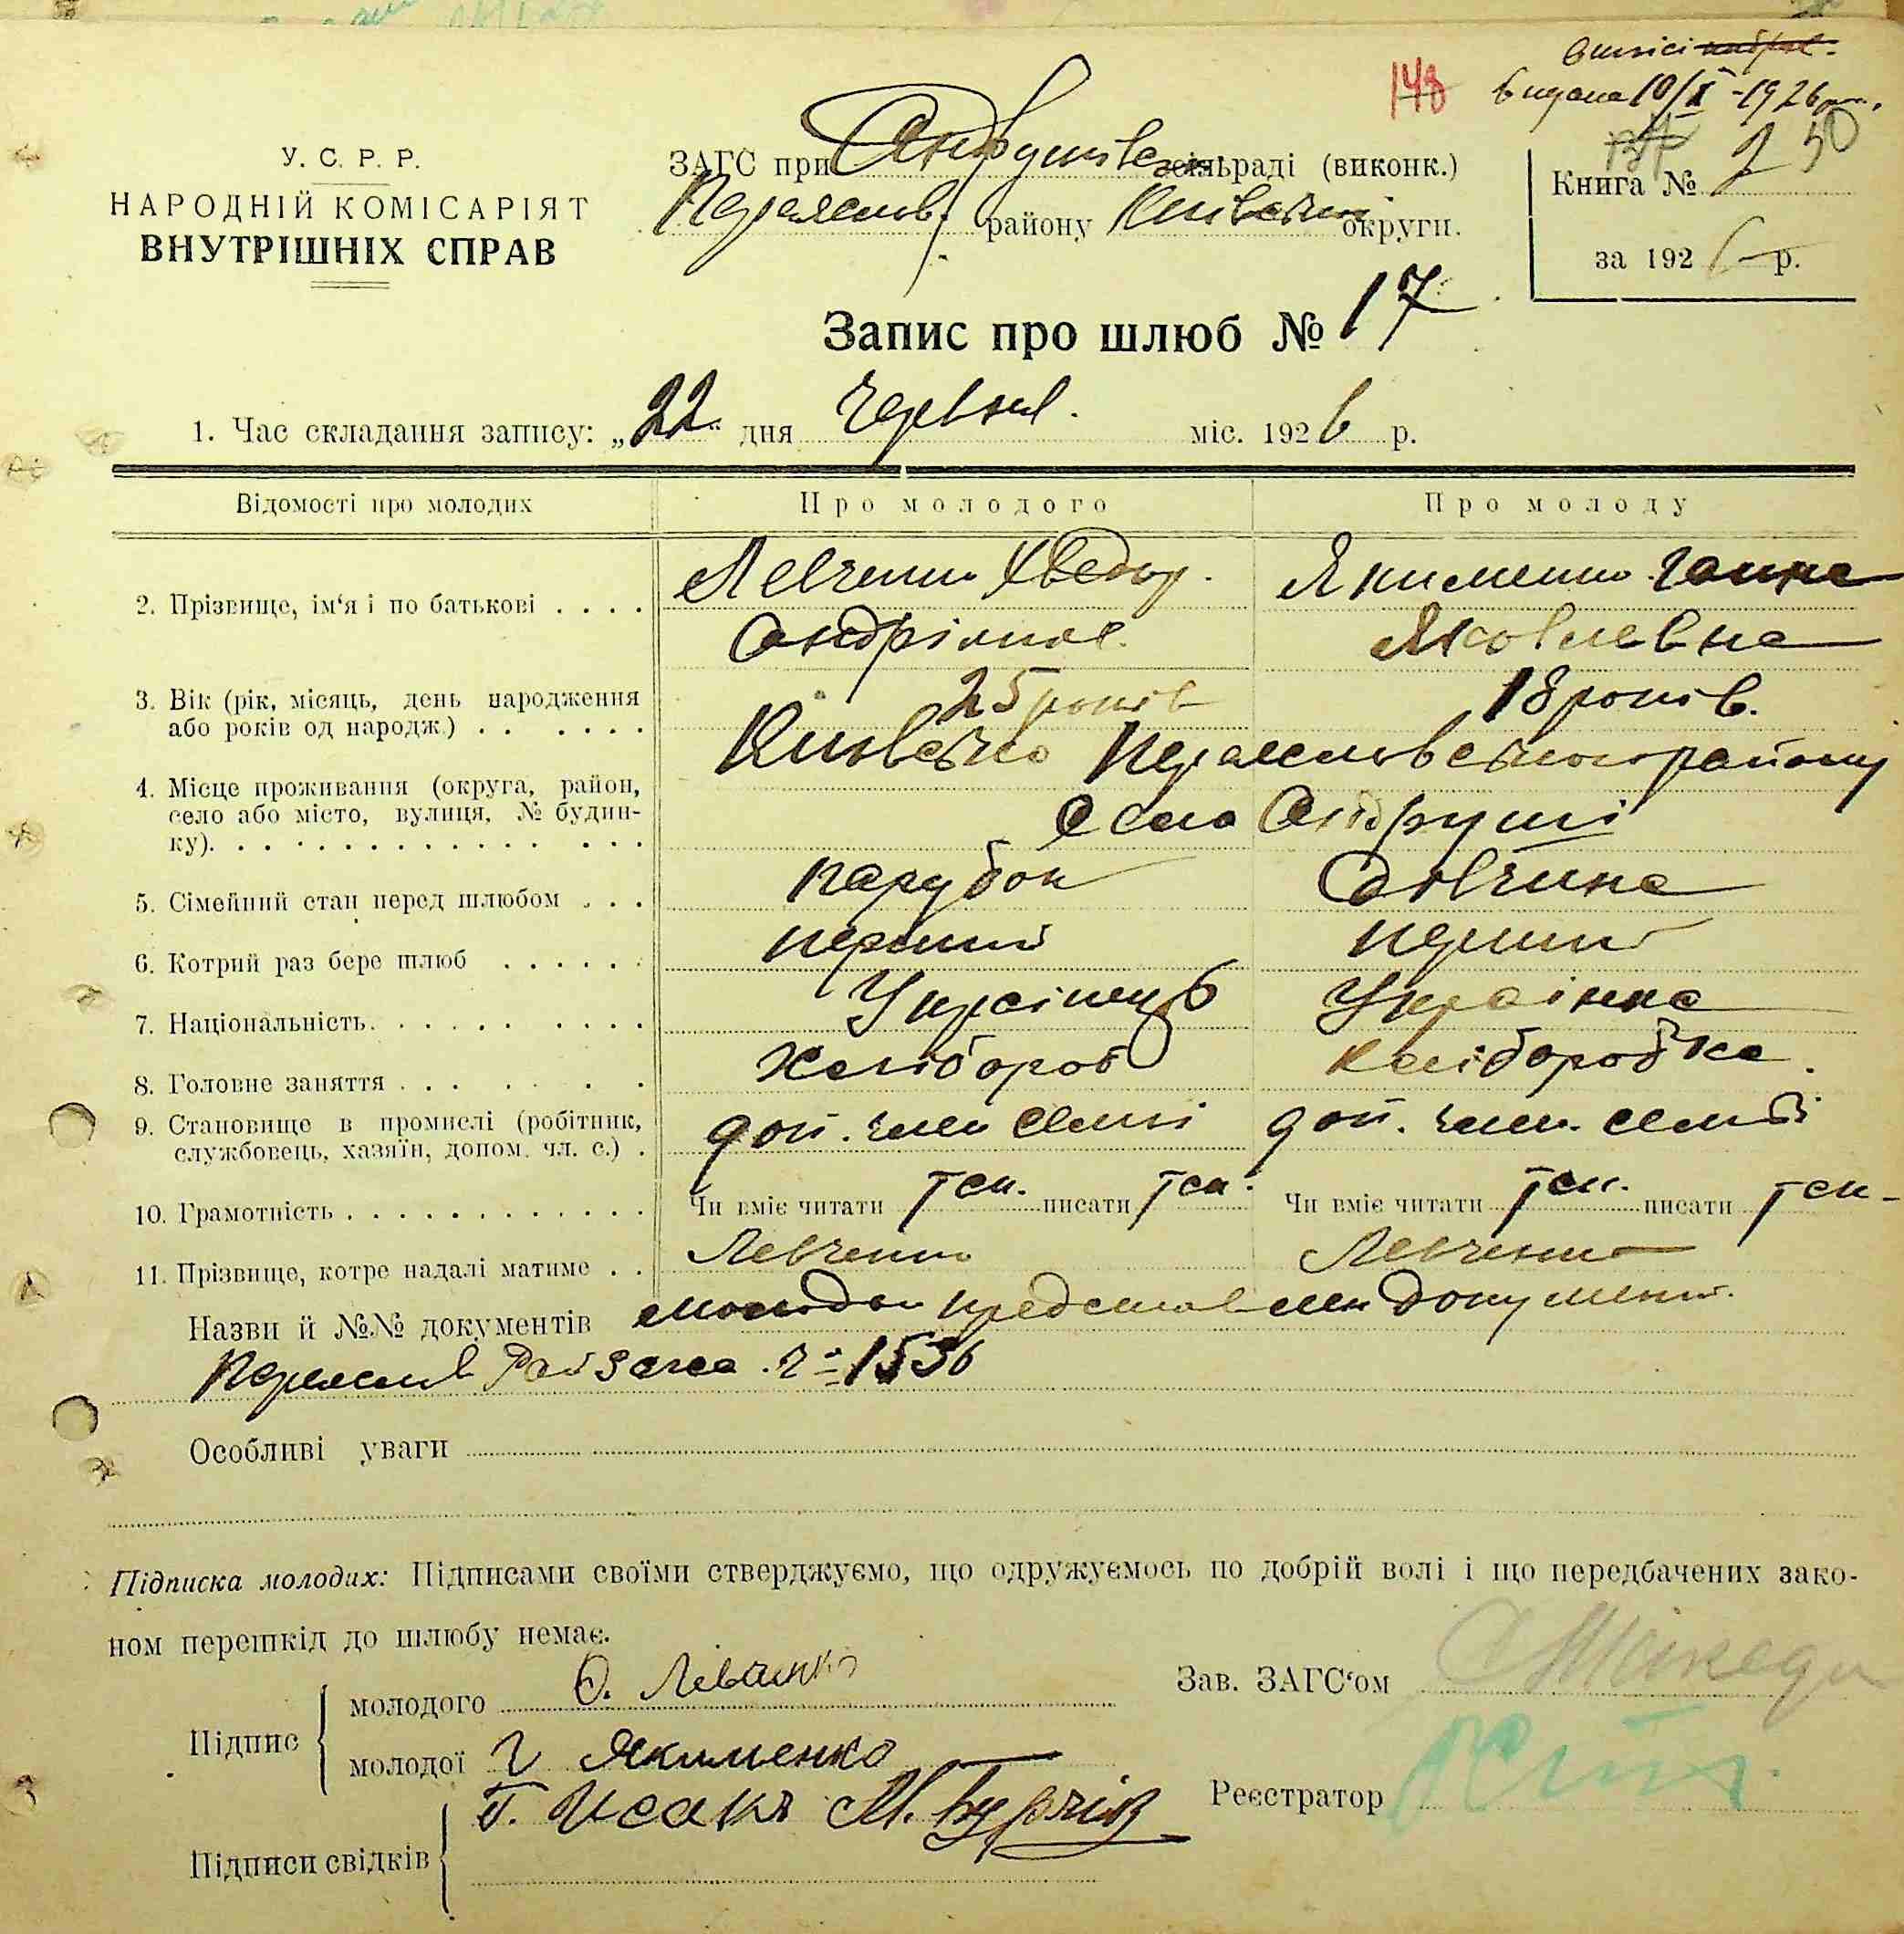 148
видана 10/X - 1926 р.
У. С. Р. Р.
НАРОДНІЙ КОМІСАРІЯТ
ВНУТРІШНІХ СПРАВ
ЗАГС при Андрушівськ. сільраді (виконк.)
Переяслов. району Київської округи.
Книга № 2 50
за 1926 р.
Запис про шлюб № 17
1. Час складання запису: „22" дня Червня міс. 1926 р.
Відомості про молодих
Про молодого
Про молоду
2. Прізвище, ім'я і по батькові . . . .
Левченко Хведор.
Андріянов.
Якименко Ганна
Яковлевна
3. Вік (рік, місяць, день народження
або років од народж.) . . . . . .
25 років
18 років.
4. Місце проживання (округа, район,
село або місто, вулиця, № будин-
ку). . . . . . . . . . . . . . . .
Київсько Переяславського району
села Андруші
5. Сімейний стан перед шлюбом . . .
парубок
дівчина
6. Котрий раз бере шлюб . . . . . .
перший
перший
7. Національність. . . . . . . . . .
Українець
Українка
8. Головне заняття . . . . . . .
Хлібороб
хліборобка.
9. Становище в промислі (робітник,
службовець, хазяїн, допом. чл. с.) .
доп. член семьі
доп. член. семьі
10. Грамотність . . . . . . . . . . . .
Чи вміє читати так. писати так.
Чи вміє читати так. писати так
11. Прізвище, котре надалі матиме . .
Левченко
Левченко
Назви й №№ документів молодой представлен документ.
Переяслів Рай загса ч: 1536
Особливі уваги
Підписка молодих: Підписами своїми стверджуємо, що одружуємось по добрій волі і що передбачених зако-
ном перешкід до шлюбу немає.
Підпис
молодого Ѳ. Левченко
молодої Г Якименко
Зав. ЗАГС'ом
Реєстратор
Підписи свідків